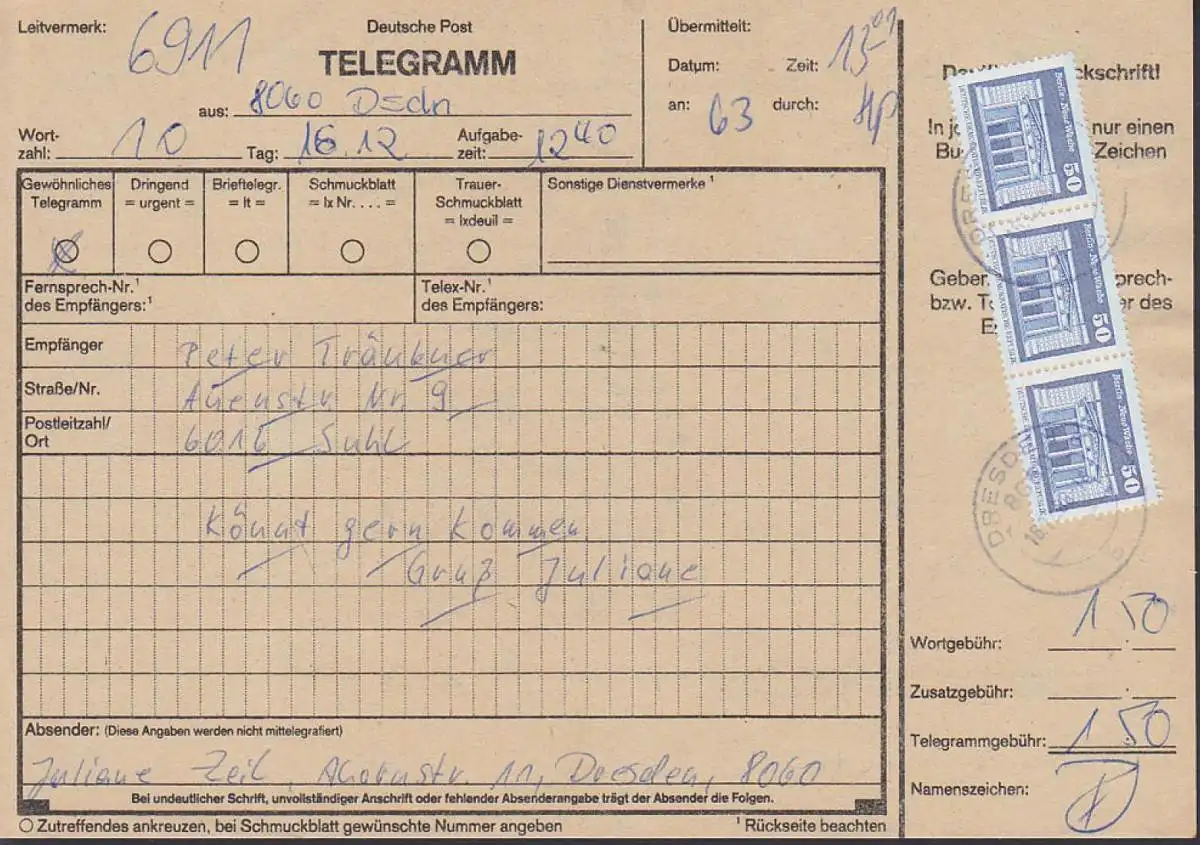 Leitvermerk:
6911
Deutsche Post
TELEGRAMM
aus: 8060 Ddn
Wort-
zahl: 10 Tag: 16.12 Aufgabe-
zeit: 12 40
Übermittelt:
Datum: Zeit: 13 01
an: 63 durch: Hp
In nur einen
Zeichen
Gewöhnliches
Telegramm
Dringend
= urgent =
Brieftelegr.
= lt =
Schmuckblatt
= lx Nr. . . . =
Trauer-
Schmuckblatt
= lxdeuil =
Sonstige Dienstvermerke ¹
Fernsprech-Nr.¹
des Empfängers:¹
Telex-Nr.¹
des Empfängers:
Geben
bzw. er des
Empfänger Peter Träubner
Straße/Nr. Auenstr Nr. 9
Postleitzahl/
Ort 6016 Suhl
Könnt gern kommen
Gruß Juliane
Absender: (Diese Angaben werden nicht mittelegrafiert)
Juliane Zeil, Ahornstr. 11, Dresden, 8060
Bei undeutlicher Schrift, unvollständiger Anschrift oder fehlender Absenderangabe trägt der Absender die Folgen.
O Zutreffendes ankreuzen, bei Schmuckblatt gewünschte Nummer angeben
¹ Rückseite beachten
Berlin-Neue Wache
50
Berlin-Neue Wache
50
Berlin-Neue Wache
50
DRESD
Wortgebühr: 1 50
Zusatzgebühr:
Telegrammgebühr: 1 50
Namenszeichen: